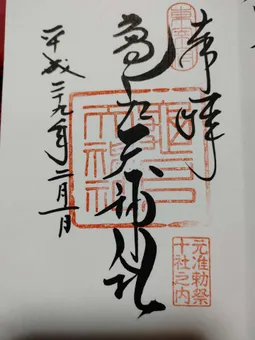 奉拝
東宰府
亀戸天神社
亀戸天神社
元准勅祭
十社之内
平成二十九年二月一日